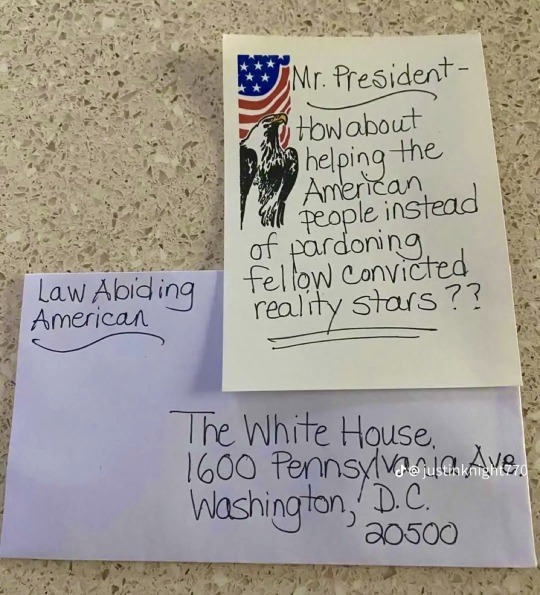 Mr. President-
How about
helping the
American
people instead
of pardoning
fellow convicted
reality stars ??
Law Abiding
American
The White House,
1600 Pennsylvania Ave.
@justinknight770
Washington, D.C.
20500